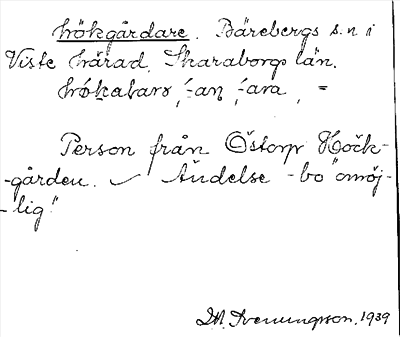 hökgårdare. Bärebergs s:n i
Viste härad, Skaraborgs län.
hökabaro, -an, -ara, =
Person från Östorp Höck-
-gården. Ändelse -bo "omöj-
-lig."
1939